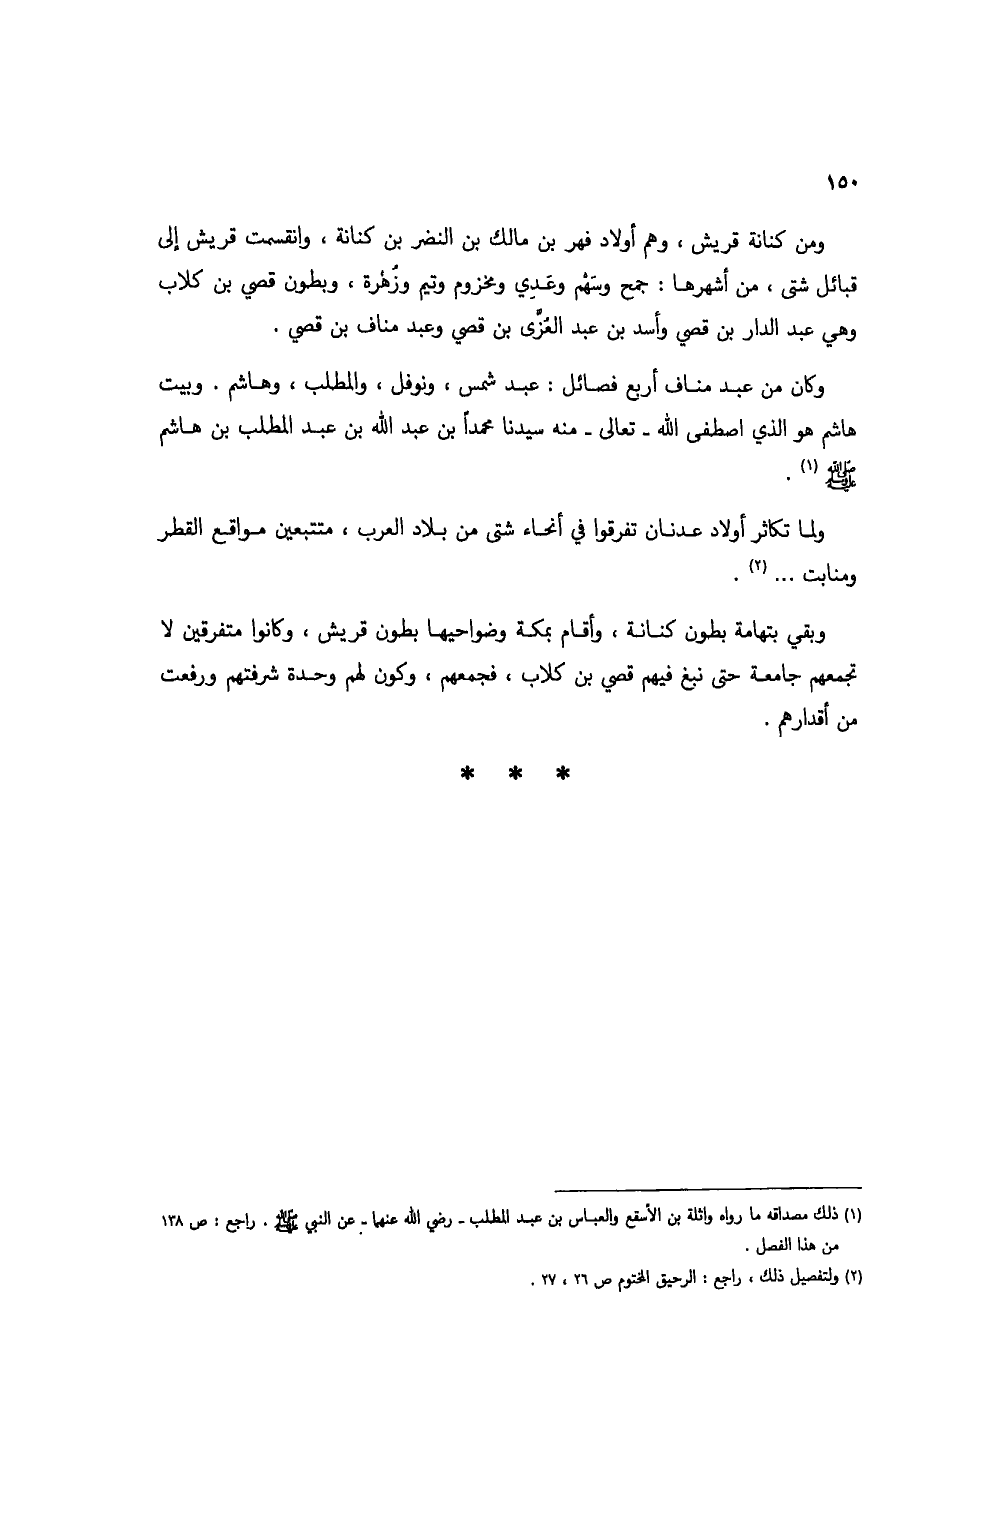 ١٥٠
ومن كنانة قريش ، وهم أولاد فهر بن مالك بن النضر بن كنانة ، وانقسمت قريش إلى
قبائل شتى ، من أشهرها : جمح وسَهْم وعَدِي ومخزوم وتيم وزُهْرة ، وبطون قصي بن كلاب
وهي عبد الدار بن قصي وأسد بن عبد العُزَّى بن قصي وعبد مناف بن قصي .
وكان من عبد مناف أربع فصائل : عبد شمس ، ونوفل ، والمطلب ، وهاشم . وبيت
هاشم هو الذي اصطفى الله - تعالى - منه سيدنا محمداً بن عبد الله بن عبد المطلب بن هاشم
ﷺ (١) .
ولما تكاثر أولاد عدنان تفرقوا في أنحاء شتى من بلاد العرب ، متتبعين مواقع القطر
ومنابت ... (٢) .
وبقي بتهامة بطون كنانة ، وأقام بمكة وضواحيها بطون قريش ، وكانوا متفرقين لا
تجمعهم جامعة حتى نبغ فيهم قصي بن كلاب ، فجمعهم ، وكون لهم وحدة شرفتهم ورفعت
من أقدارهم .
* * *
(١) ذلك مصداقه ما رواه واثلة بن الأسقع والعباس بن عبد المطلب - رضي الله عنهما - عن النبي ﷺ . راجع : ص ١٣٨
من هذا الفصل .
(٢) ولتفصيل ذلك ، راجع : الرحيق المختوم ص ٢٦ ، ٢٧ .